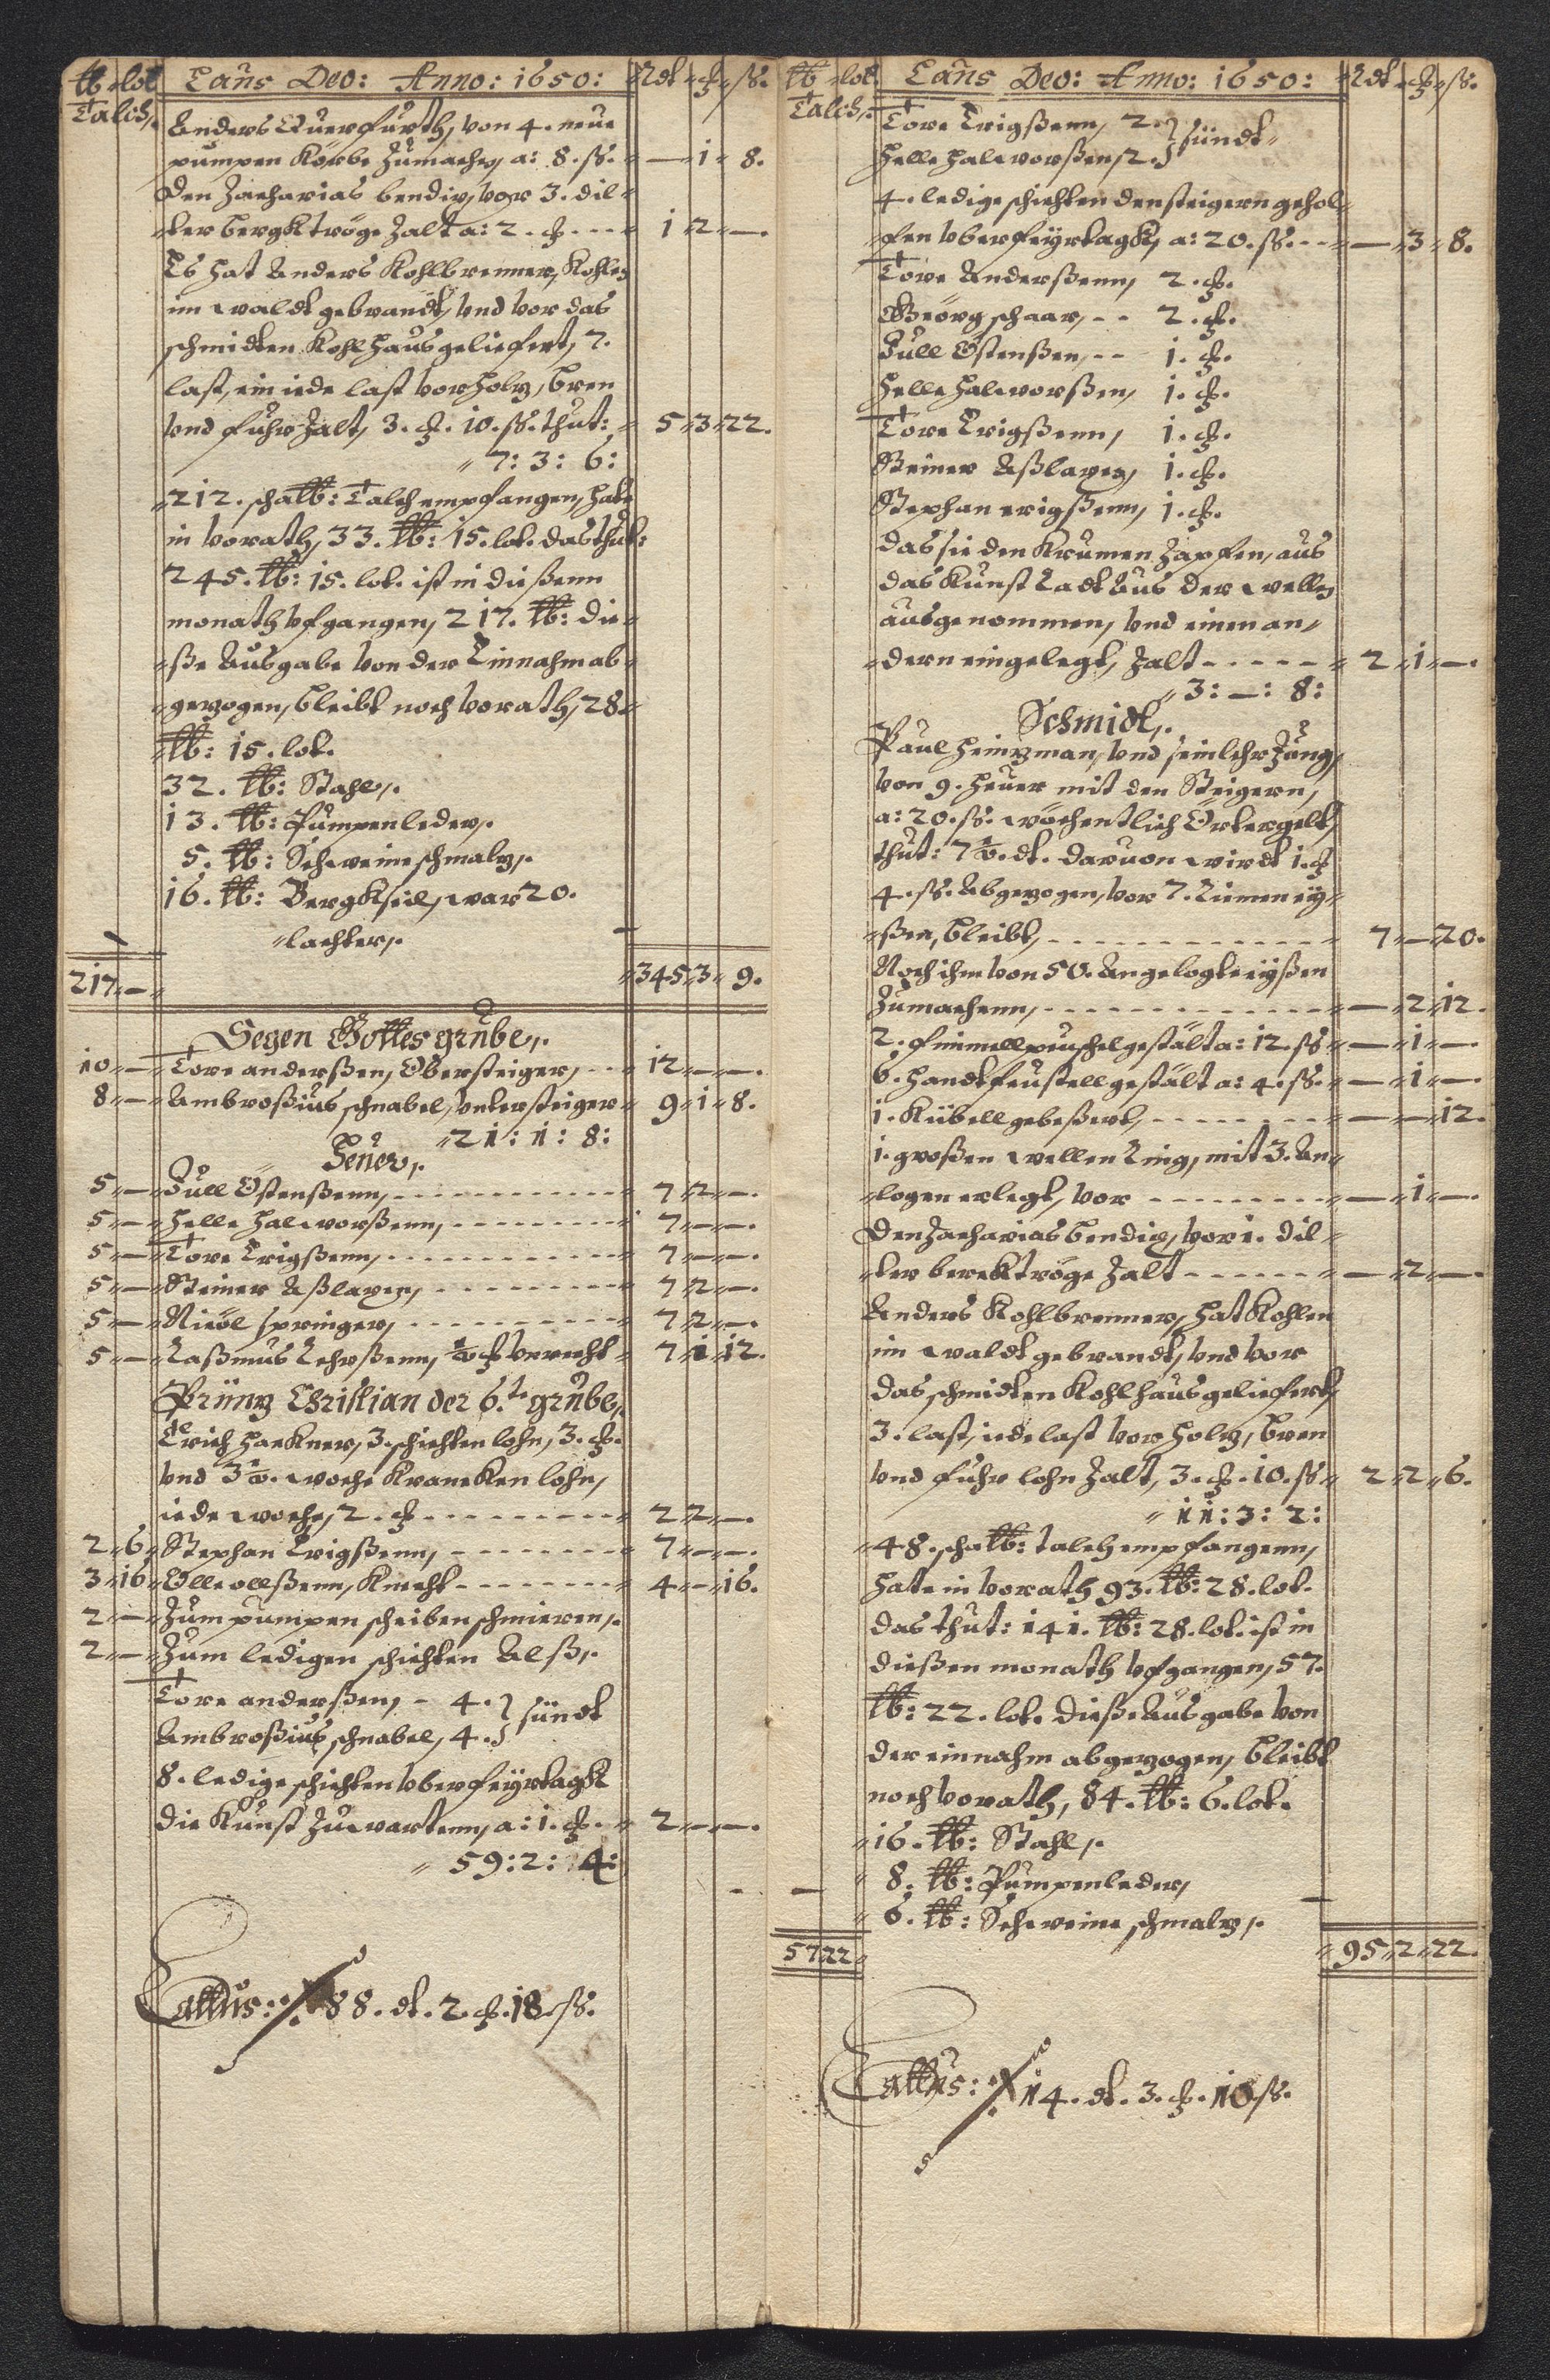 lb lot Laus Deo: Anno: 1650: Rdt ꝗ ß.
Talch,.
Anders Querfurth, von 4. neue
pumpen Körbe Zumachen, a: 8. ß. — 1 8.
Den Zacharias bendix, vor 3. dil-
ter bergktröge Zalt a: 2. ꝗ. 1 2 —.
Es hat Anders Kohlbrenner, Kohlen
im waldt gebrandt, vnd vor das
schmidten Kohlhaus geliefert, 7.
last, ein iede last vor holtz, bren
vnd fuhr Zalt, 3. ꝗ. 10. ß. thut: 5 3 22.
7: 3: 6:
212. scha lb: Talch empfangen, hate
in vorath, 33. lb: 15. lot. das thut:
245. lb: 15. lot. ist in dießenn
monath vfgangen, 217. lb: die-
ße Ausgabe von der Einnahm ab-
gezogen, bleibt noch vorath, 28.
lb: 15. lot.
32. lb: Stahl,.
13. lb: Pumpenleder,.
5. lb: Schweine schmaltz,.
16. lb: Bergkseil, war 20.
lachter,.
217 — 345 3 9.
Segen Gottes grube,.
10 — Tore anderßen, Obersteiger, 12 — —.
8 — Ambroßius schnabel, vntersteiger 9 1 8.
21: 1: 8:
Heüer,.
5 — Jull Ostenßenn, 7 2 —.
5 — Helle Halworßenn, 7 — —.
5 — Tore Erigßenn, 7 — —.
5 — Steiner Aßlaxen, 7 2 —.
5 — Nicol springer, 7 2 —.
5 — Raßmus Lehrßenn, ½ ꝗ verucht 7 1 12.
Printz Christian der 6.te grube,.
Erich Hackner, 3. schichten lohn, 3. ꝗ.
vnd 3½. woche Krancken lohn,
iede woche, 2. ꝗ 2 2 —.
2 6 Stephan Erigßenn, 7 — —.
3 16 Olle ollßenn, Knecht 4 — 16.
2 — Zum pumpen scheiben schmieren,.
2 — Zum ledigen schichten Alß,.
Tore anderßen, - 4. } sündt
Ambroßius schnabel, 4.
8. ledige schichten vber feyrtagk
die Kunst Zuwartenn, a: 1. ꝗ. 2 — —.
59: 2: 4:
Lattus: 88. dt. 2. ꝗ. 18. ß.
lb lot Laus Deo: Anno: 1650: Rdt ꝗ ß.
Talch,.
Tore Erigßenn, 2. } sündt
Helle Halworßen, 2.
4. ledige schichten den steigern gehol-
fen vber feyrtagk, a: 20. ß. — 3 8.
Tore Anderßenn, 2. ꝗ.
Georg schaar, - - 2. ꝗ.
Jull Ostenßen, - - 1. ꝗ.
Helle Halworßen, 1. ꝗ.
Tore Erigßenn, 1. ꝗ.
Steiner Aßlaxen, 1. ꝗ.
Stephan erigßenn, 1. ꝗ.
das sie den Krumen Zapfen, aus
das Kunst Radt Aus der wellen
ausgenommen, vnd einen an-
dern eingelegt, Zalt 2 1 —.
3: —: 8:
Schmidt,.
Paul Heintzman, vnd sein lehr Jung,
von 9. heuer mit den Steigern,
a: 20. ß. wöchentlich Örtergelt,
thut: 7½. dt. daruon wirdt 1. ꝗ
4. ß. Abgezogen, vor 7. Rimen ey-
ßen, bleibt, 7 — 20.
Noch ihm von 50. Angelogte eyßen
Zumachenn, — 2 12.
2. fimmell peuschel gestält a: 12. ß — 1 —.
6. handtfeustell gestält a: 4. ß. — 1 —.
1. Kübell gebeßert, — — 12.
1. großen wellen Ring, mit 3. An-
logen erlegt, vor — 1 —.
Den Zacharias bendix, vor 1. dil-
ter bercktröge Zalt — 2 —.
Anders Kohlbrenner, hat Kohlen
im waldt gebrandt, vnd vor
das schmidten Kohlhaus geliefert,
3. last, iede last vor holtz, bren
vnd fuhr lohn Zalt, 3. ꝗ. 10. ß 2 2 6.
11: 3: 2:
48. scha lb: talch empfangenn,
hate in vorath 93. lb: 28. lot.
das thut: 141. lb: 28. lot. ist in
dießen monath vfgangen, 57.
lb: 22. lot. dieße Ausgabe von
der einnahm abgezogen, bleibt
noch vorath, 84. lb: 6. lot.
16. lb: Stahl,.
8. lb: Pumpenleder,
6. lb: Schweine schmaltz,.
57 22 95 2 22.
Lattus: 14. dt. 3. ꝗ. 10. ß.